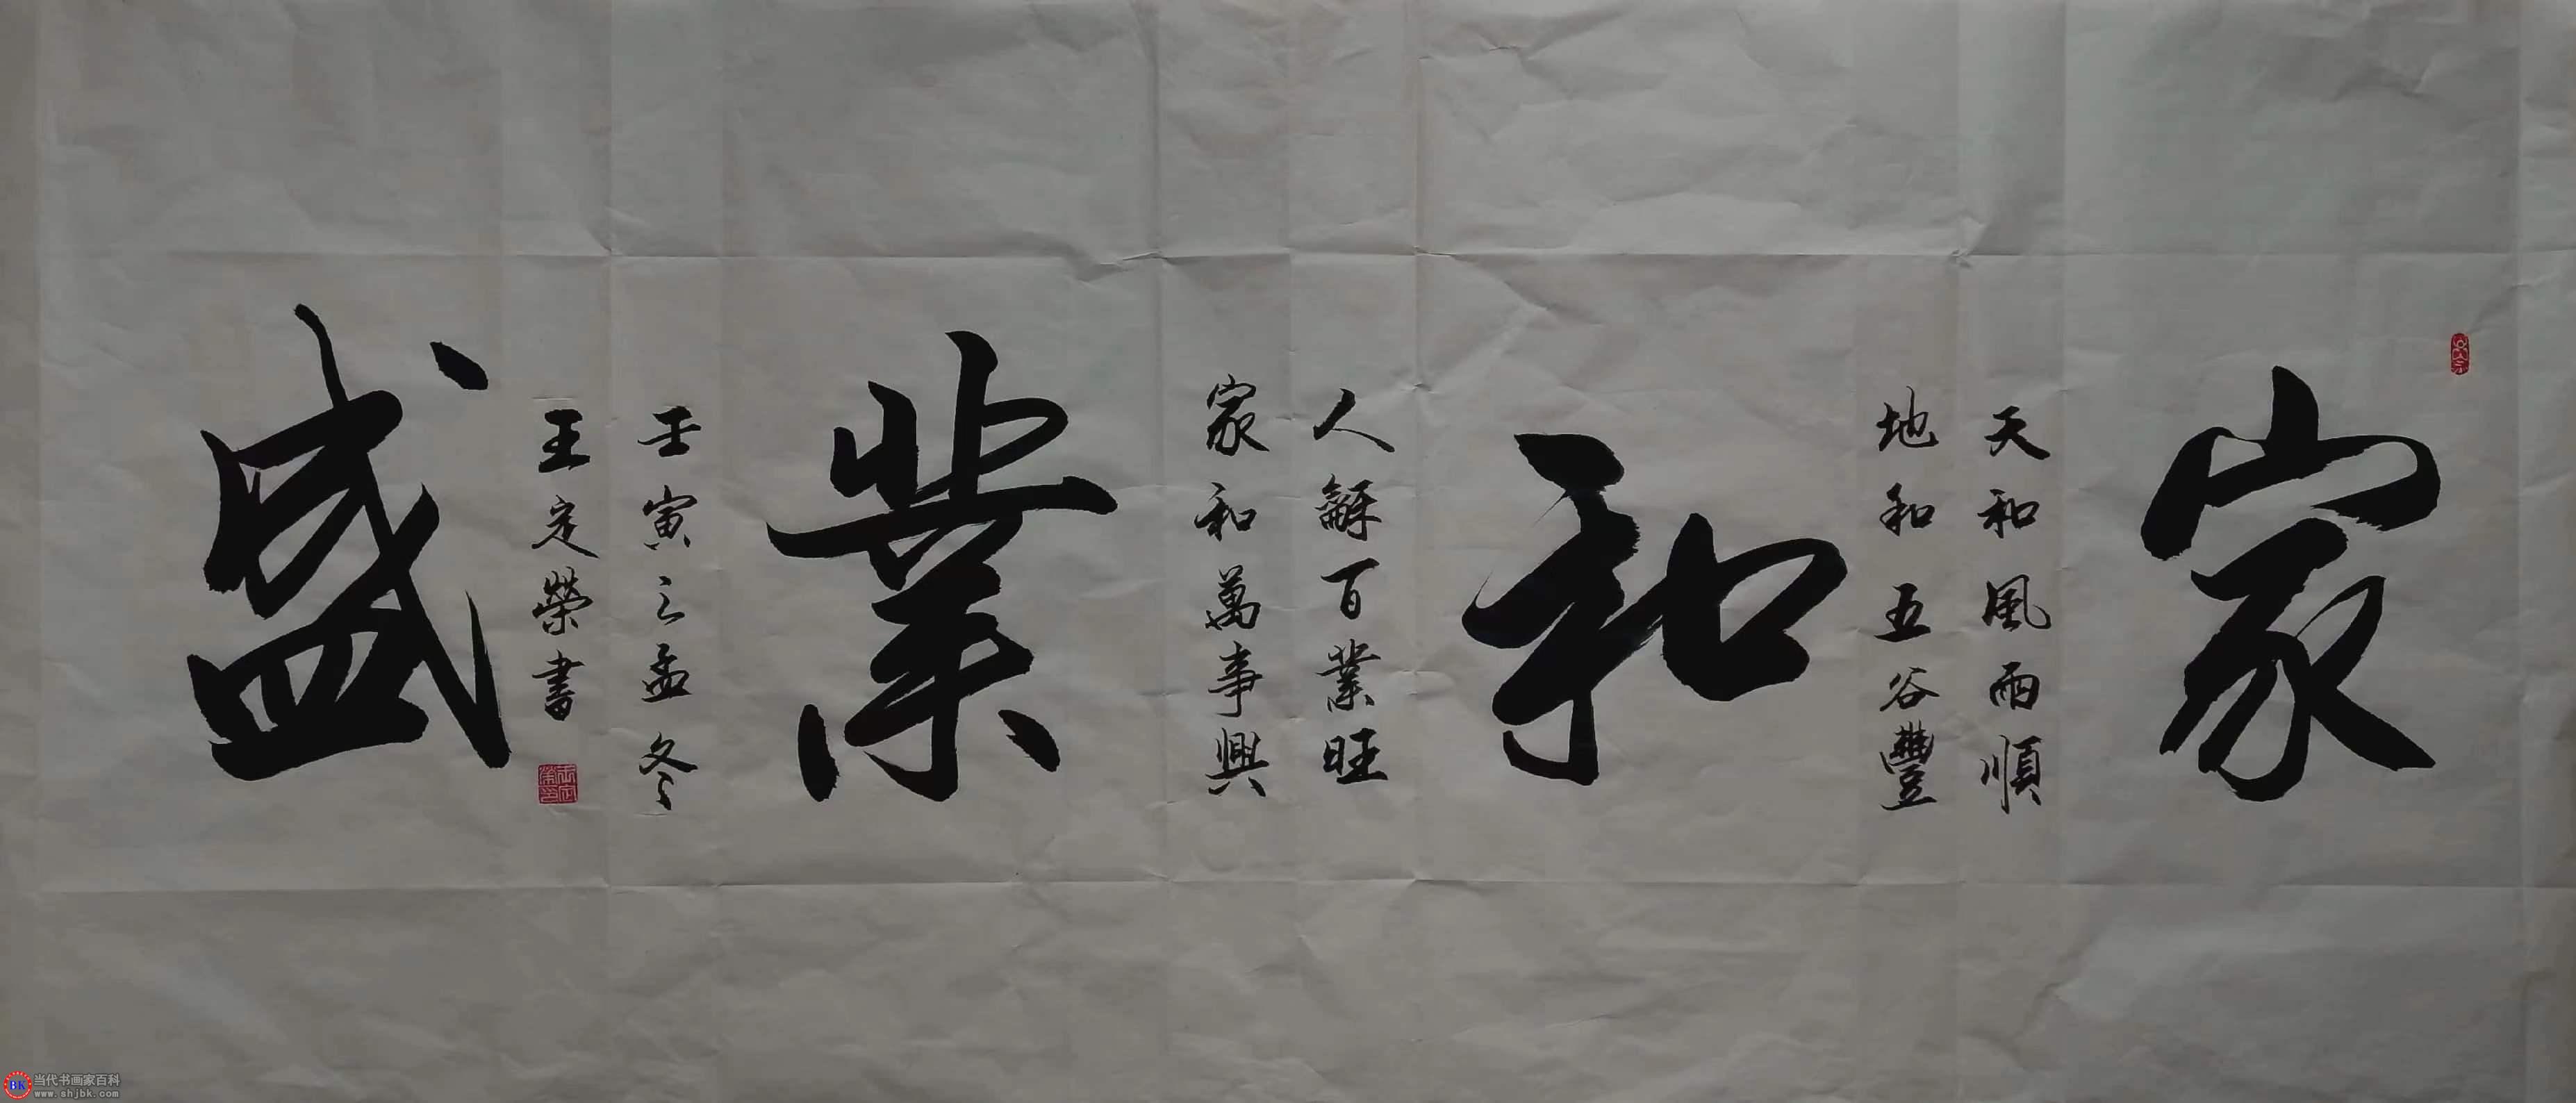 家
天和風雨順
地和五谷豐
和
人龢百業旺
家和萬事興
業
壬寅之孟冬
王定榮書
盛
BK
当代书画家百科
www.shjbk.com